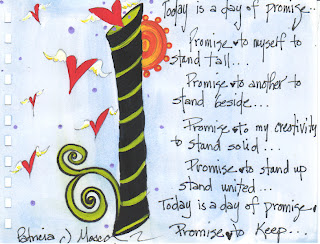 Today is a day of promise..
Promise to myself to
stand tall...
Promise to another to
stand beside...
Promise to my creativity
to stand solid...
Promise to stand up
stand united...
Today is a day of promise
Promise to Keep...
Patricia J